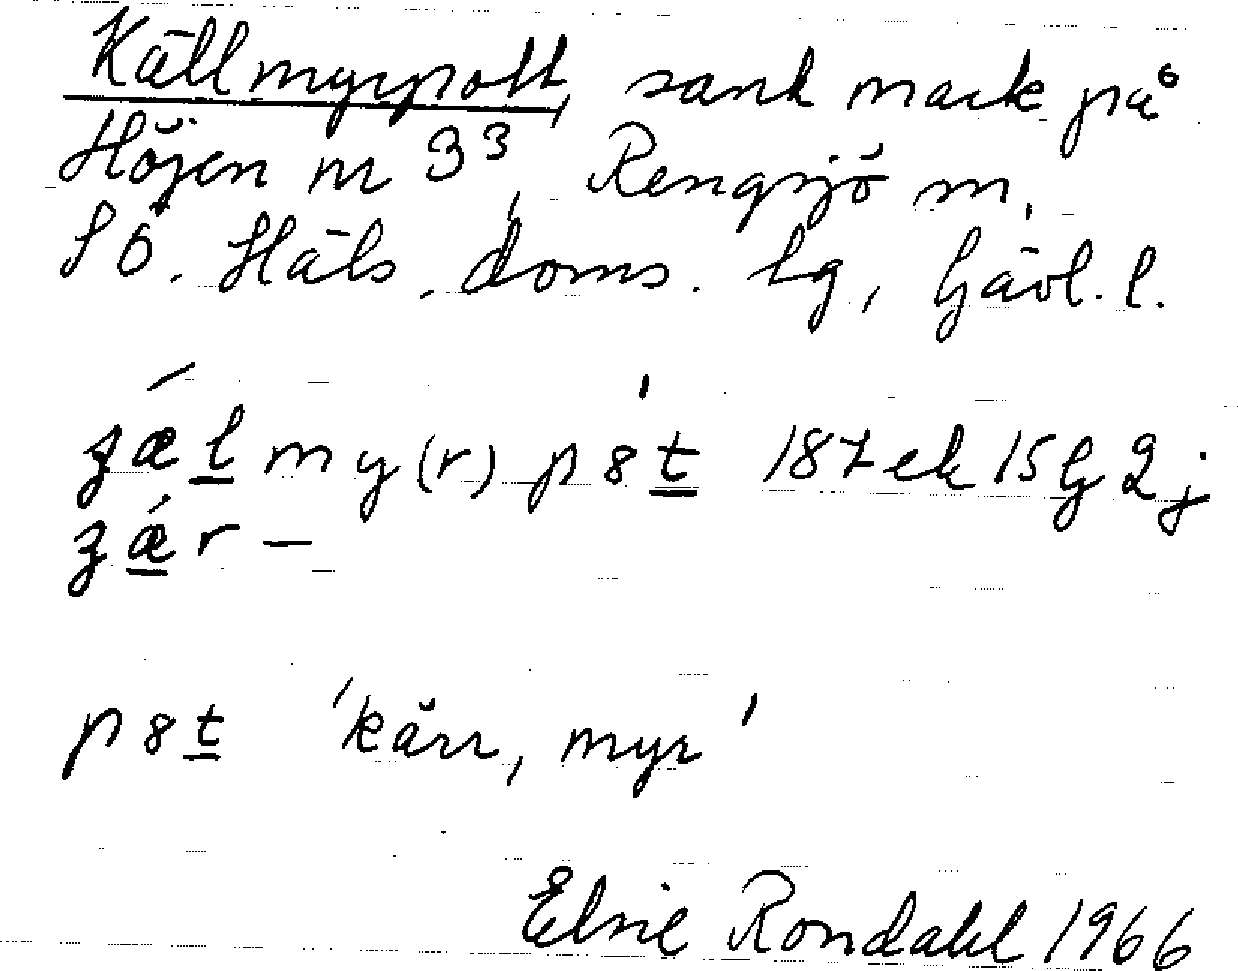 Källmyrpott, sank mark på
Höjen nr 3³, Rengsjö sn,
SÖ. Häls. doms. lg, Gävl. l.
my(r) p8t 187ek 15G 2j
p8t 'kärr, myr'
Elsie Rondahl 1966